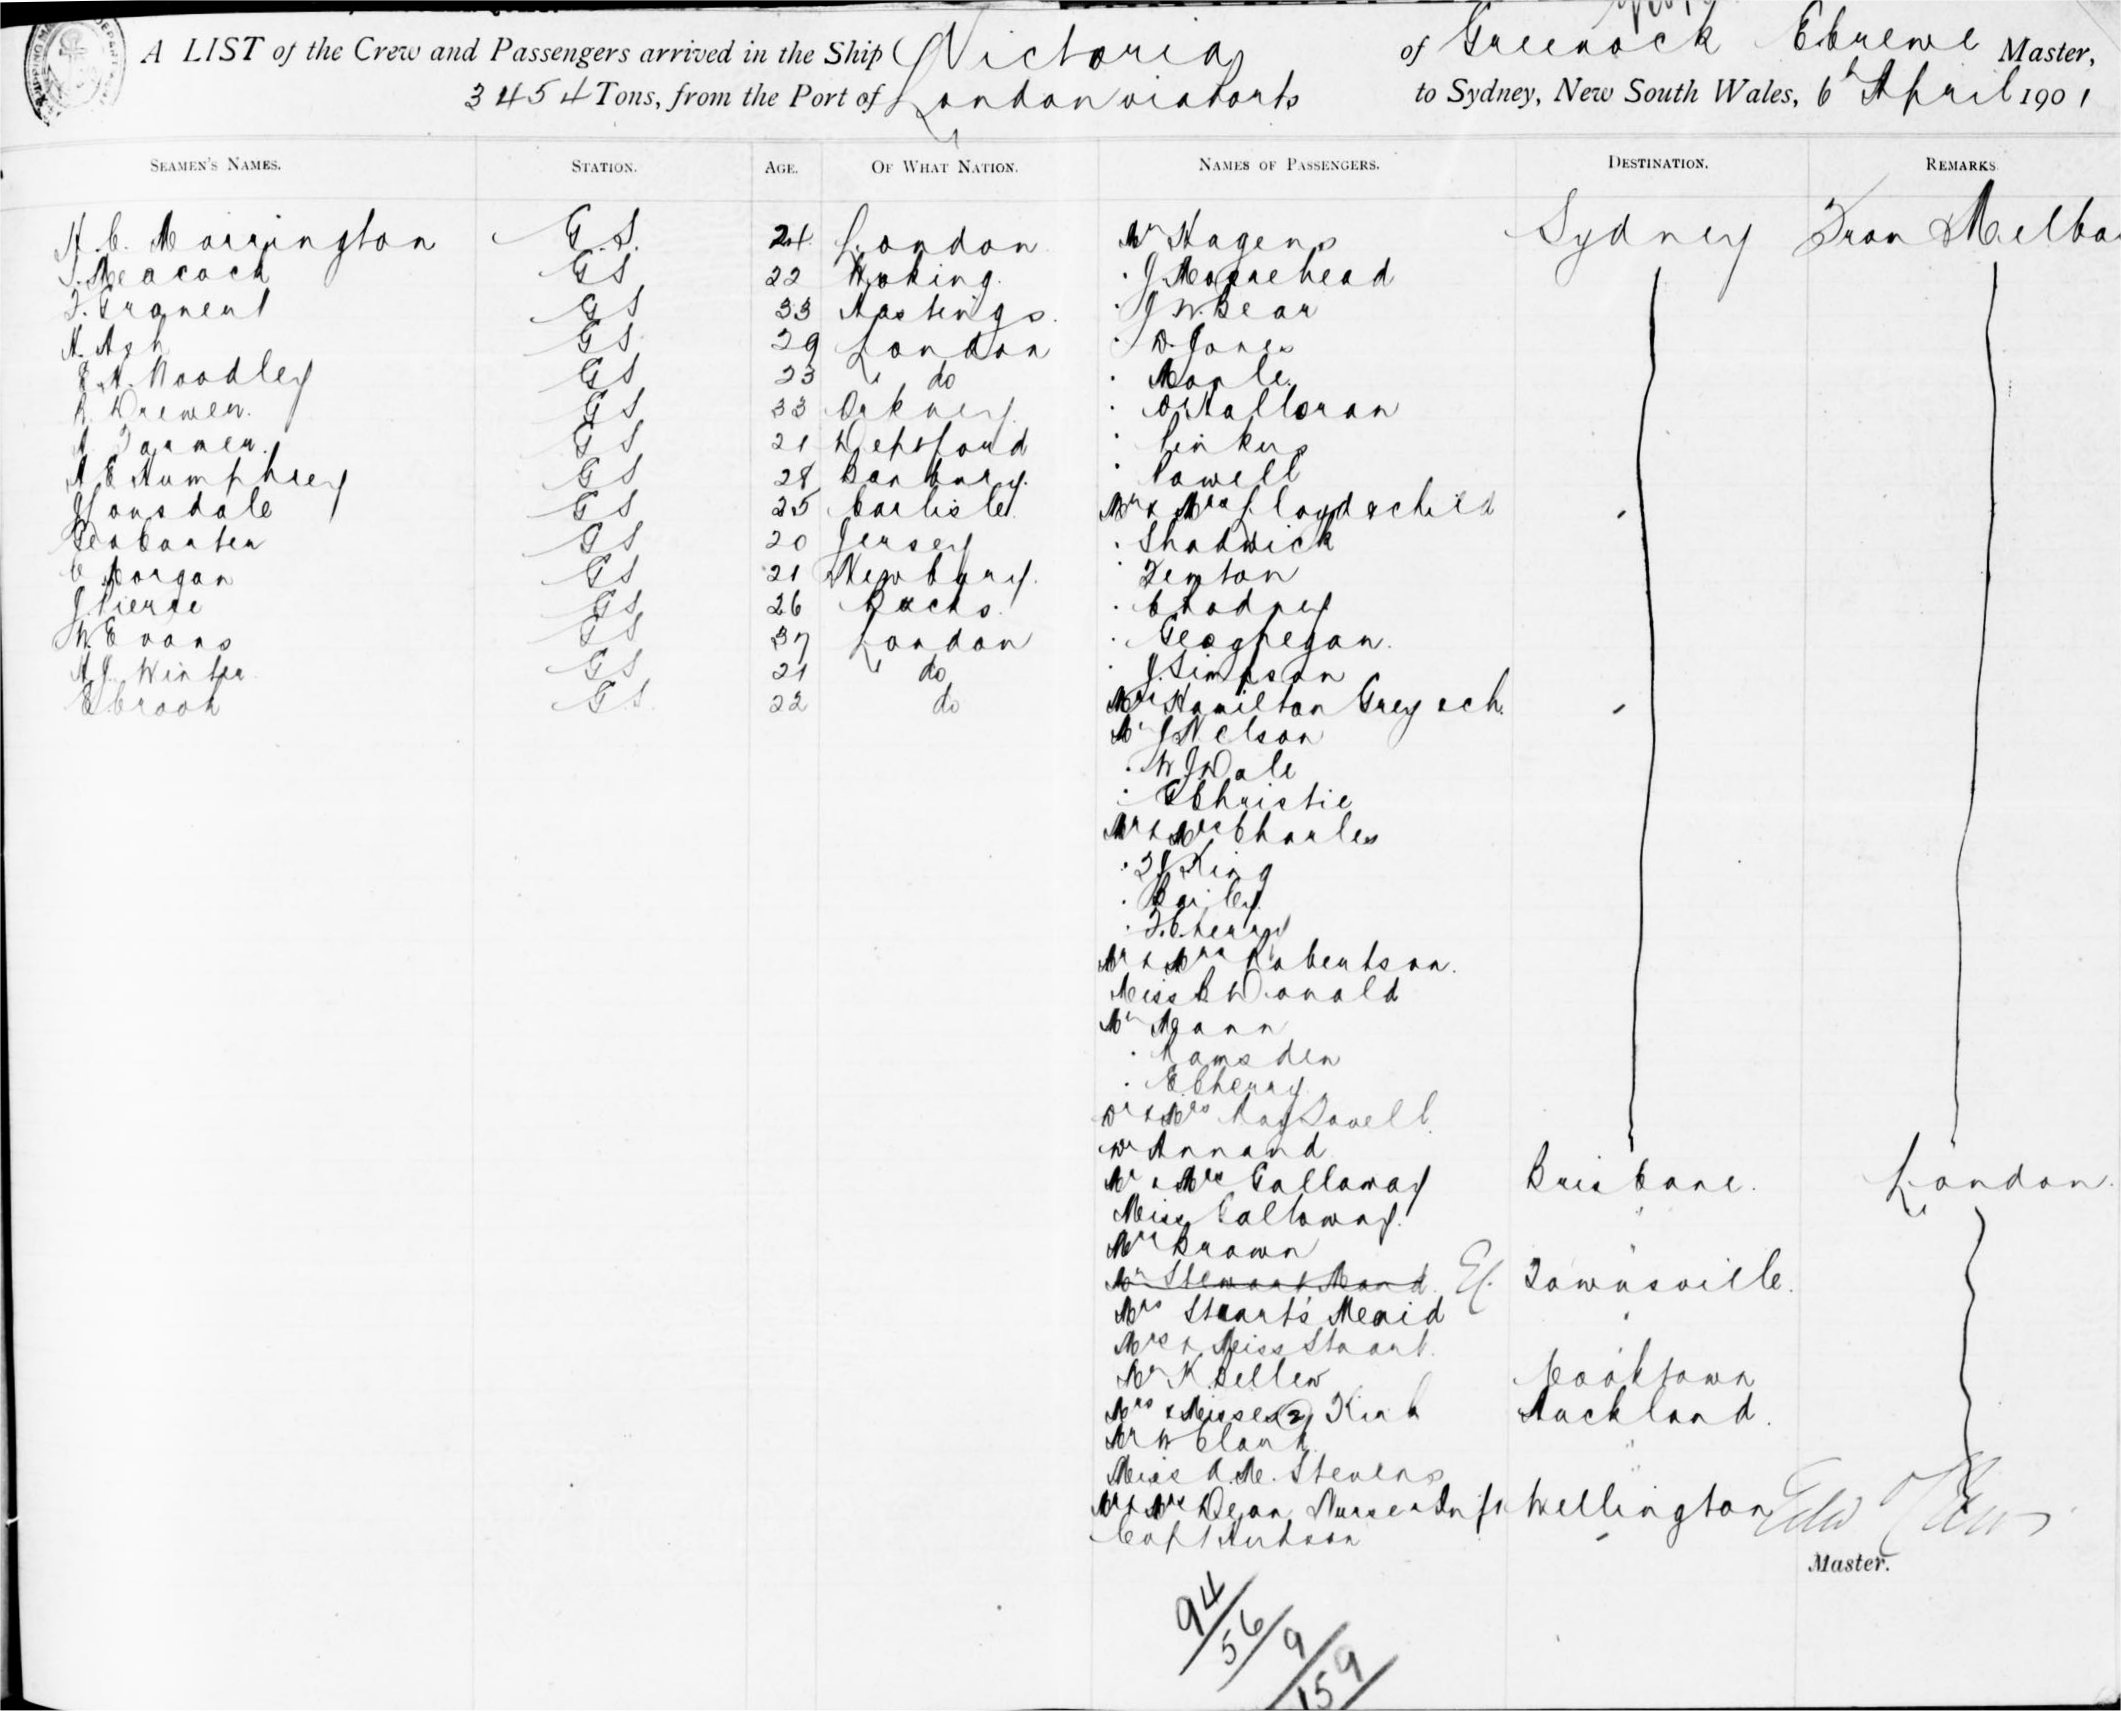 A LIST of the Crew and Passengers arrived in the Ship Victoria of Greenock Master,
3454 Tons, from the Port of London via Ports to Sydney, New South Wales, 6th April 1901
SEAMEN'S NAMES. STATION. AGE. OF WHAT NATION. NAMES OF PASSENGERS. DESTINATION. REMARKS
H. C. Morrington G.S. 24 London Mr Hagens Sydney From Melbo
Meacock GS 22 Woking. " J. Moorehead
GS 33 Hastings. " J W. Bear
H. Ash GS 29 London " D. Jones
Woodley GS 23 do " Morle.
Drewer. GS 33 Orkney " O'Halloran
Farmer. GS 21 Deptford " Pinkus
A E Humphrey GS 28 Banbury. " Powell
J Lonsdale GS 25 Carlisle. Mr & Mrs Lloyd & child "
Geo Carter GS 20 Jersey " Shadwick
C Morgan GS 21 Newbury. " Fenton
J. Pierce GS 26 Bucks. " Chodney
W. Evans GS 37 London " Geoghegan.
A J Winter GS 21 do " J. Simpson
E. Crook GS. 22 do Mrs Hamilton Grey & ch. "
Mr J Nelson
" W J Dale
" G Christie
Mr & Mrs Charles
" F J King
" Bailey
" F. Cherry
Mr & Mrs Robertson.
Miss B Donald
Mr Mann
" Ramsden
" E Cherry.
Dr & Mrs
Dr Annand
Mr & Mrs Galloway Brisbane. London.
Miss Galloway. "
Mr Brown "
Mr Stewart & Maid Townsville.
Mrs Stuart's Maid "
Mrs & Miss Stuart.
Mr K Bellew Cooktown
Mrs & Misses (2) Kirk Auckland.
Mr W Clark "
Miss A. M. Stevens "
Mr & Mrs Dean, Nurse & Inft Wellington
Capt Hudson "
Master.
94/
56/
9/
159/